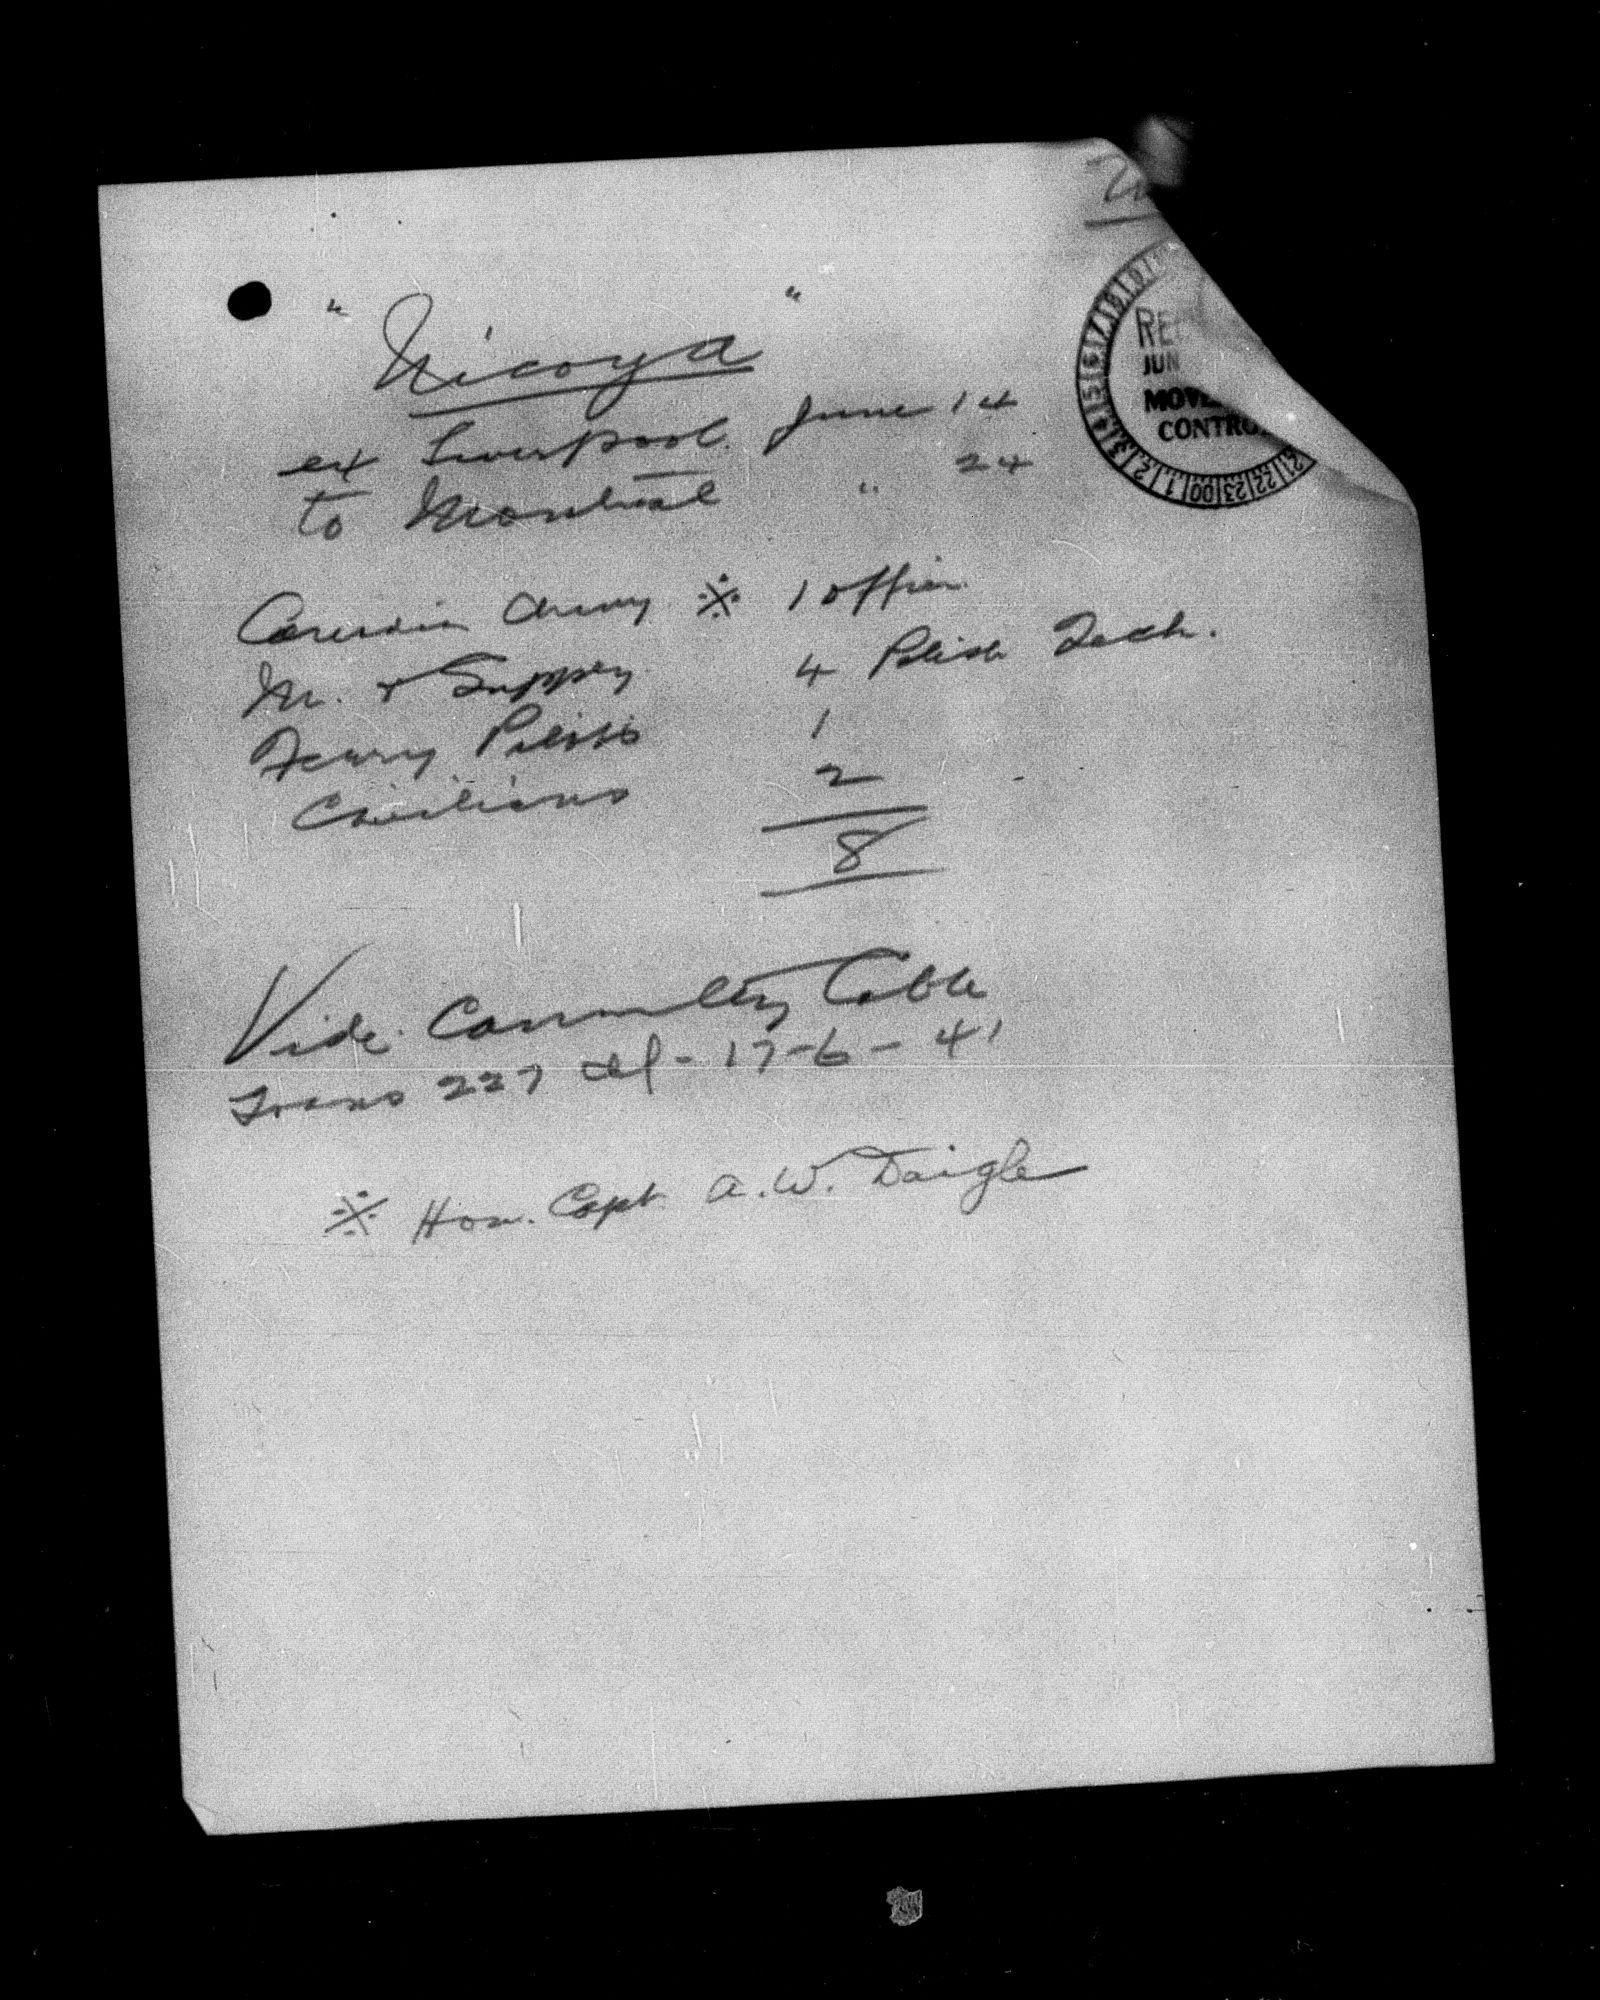 " Nicoya "
ex Liverpool. June 14
to Montreal " 24
Canadian Army ※ 1 officer
M. & Supply 4 Polish Tech.
Ferry Pilots 1
Civilians 2
8
Vide Canmilitry Cable
Trans 227 dd - 17-6-41
※ Hon. Capt. A.W. Daigle
JUN
CONTRO
15 14 13 12 11 00 23 22 21